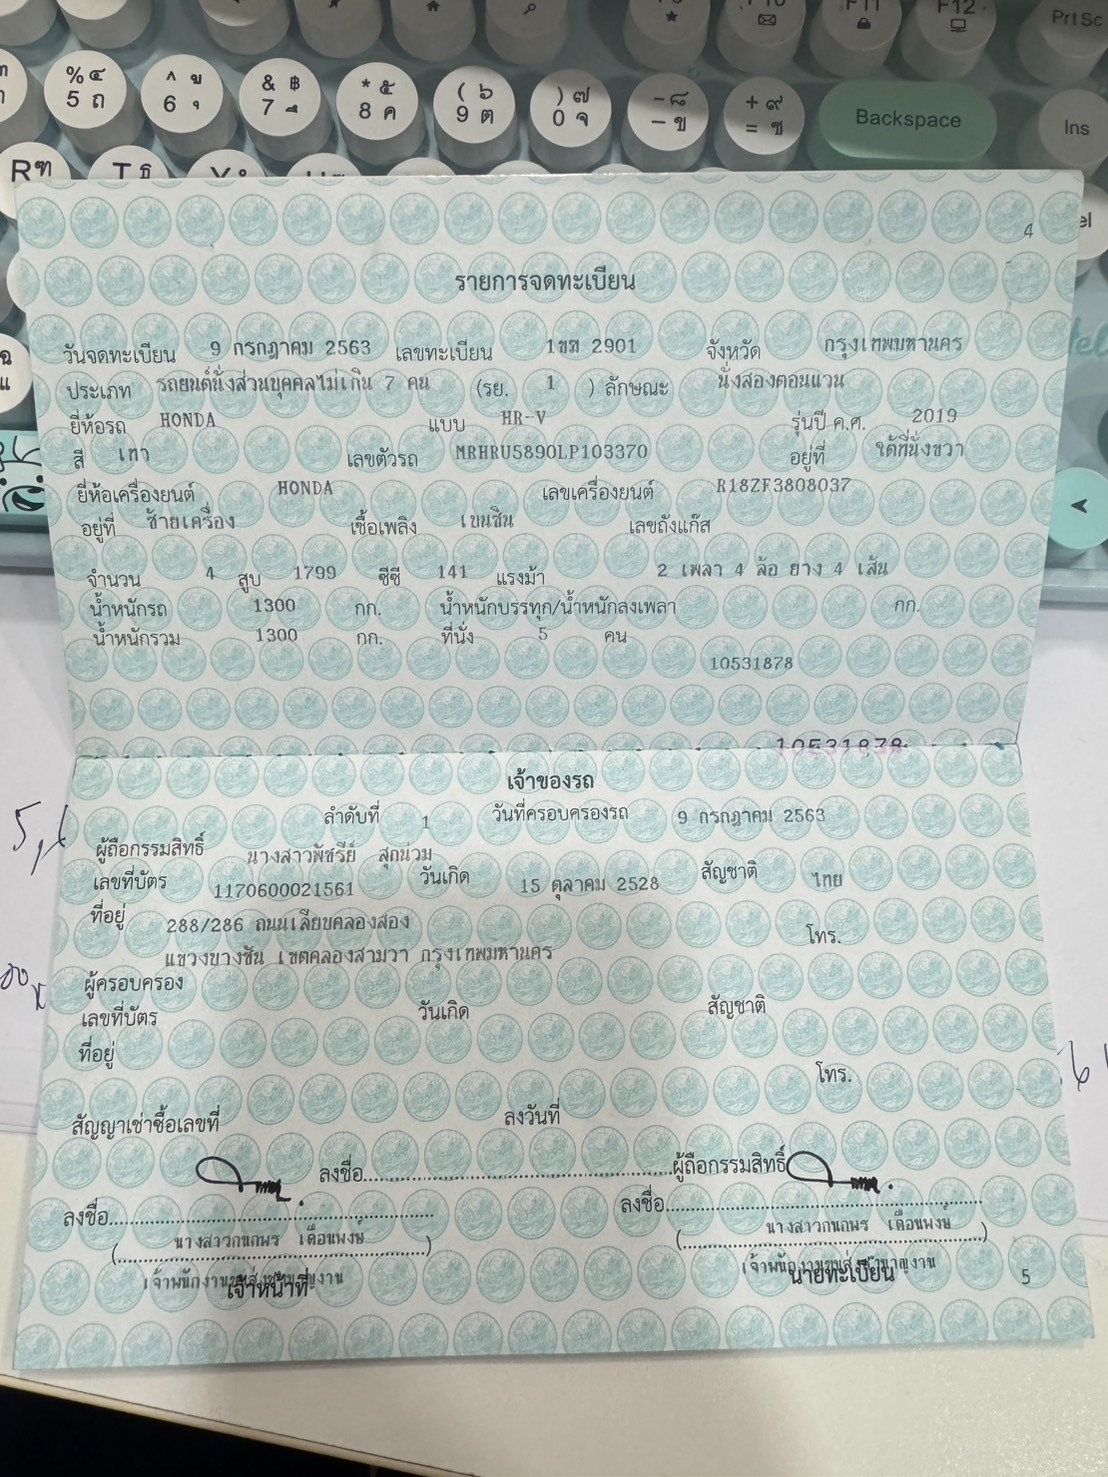 % ๔ ^ ข & ฿ * ๕ ( ๖ ) ๗ - ๘ + ๙ Backspace Ins
5 ถ 6 ุ 7 ึ 8 ค 9 ต 0 จ - ข = ช
F11 F12 PrtSc
4
รายการจดทะเบียน
วันจดทะเบียน 9 กรกฎาคม 2563 เลขทะเบียน 1ขท 2901 จังหวัด กรุงเทพมหานคร
ประเภท รถยนต์นั่งส่วนบุคคลไม่เกิน 7 คน (รย. 1 ) ลักษณะ นั่งสองตอนแวน
ยี่ห้อรถ HONDA แบบ HR-V รุ่นปี ค.ศ. 2019
สี เทา เลขตัวรถ MRHRU5890LP103370 อยู่ที่ ใต้ที่นั่งขวา
ยี่ห้อเครื่องยนต์ HONDA เลขเครื่องยนต์ R18ZF3808037
อยู่ที่ ซ้ายเครื่อง เชื้อเพลิง เบนซิน เลขถังแก๊ส
จำนวน 4 สูบ 1799 ซีซี 141 แรงม้า 2 เพลา 4 ล้อ ยาง 4 เส้น
น้ำหนักรถ 1300 กก. น้ำหนักบรรทุก/น้ำหนักลงเพลา กก.
น้ำหนักรวม 1300 กก. ที่นั่ง 5 คน
10531878
10531878
เจ้าของรถ
ลำดับที่ 1 วันที่ครอบครองรถ 9 กรกฎาคม 2563
ผู้ถือกรรมสิทธิ์ นางสาวพัชรีย์ สุกน่วม
เลขที่บัตร 1170600021561 วันเกิด 15 ตุลาคม 2528 สัญชาติ ไทย
ที่อยู่ 288/286 ถนนเลียบคลองสอง โทร.
แขวงบางชัน เขตคลองสามวา กรุงเทพมหานคร
ผู้ครอบครอง
เลขที่บัตร วันเกิด สัญชาติ
ที่อยู่ โทร.
สัญญาเช่าซื้อเลขที่ ลงวันที่
ลงชื่อ ผู้ถือกรรมสิทธิ์
ลงชื่อ ลงชื่อ
(นางสาวกนกพร เดือนพงษ์) (นางสาวกนกพร เดือนพงษ์)
เจ้าพนักงานขนส่งชำนาญงาน เจ้าพนักงานขนส่งชำนาญงาน
เจ้าหน้าที่ นายทะเบียน 5